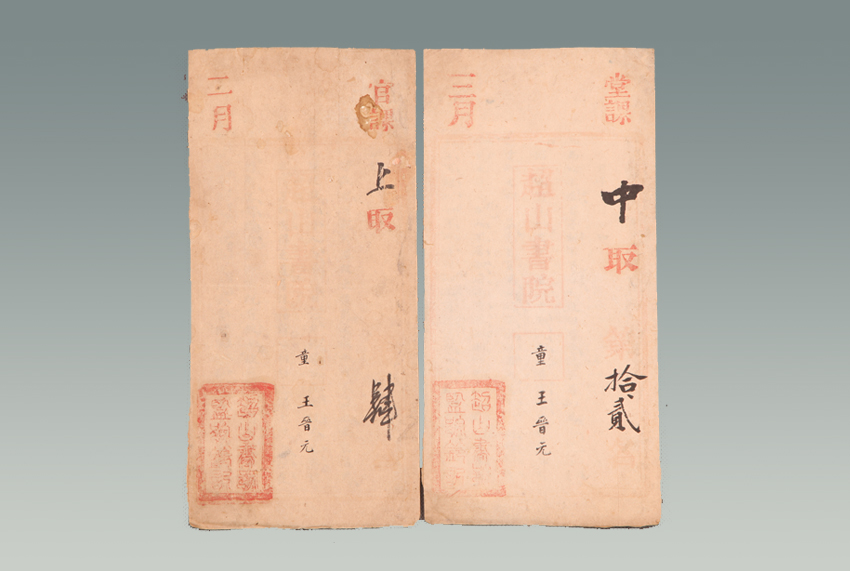 官課
上取
肆
童 王晉元
二月
堂課
中取
第拾貳
超山書院
童 王晉元
三月